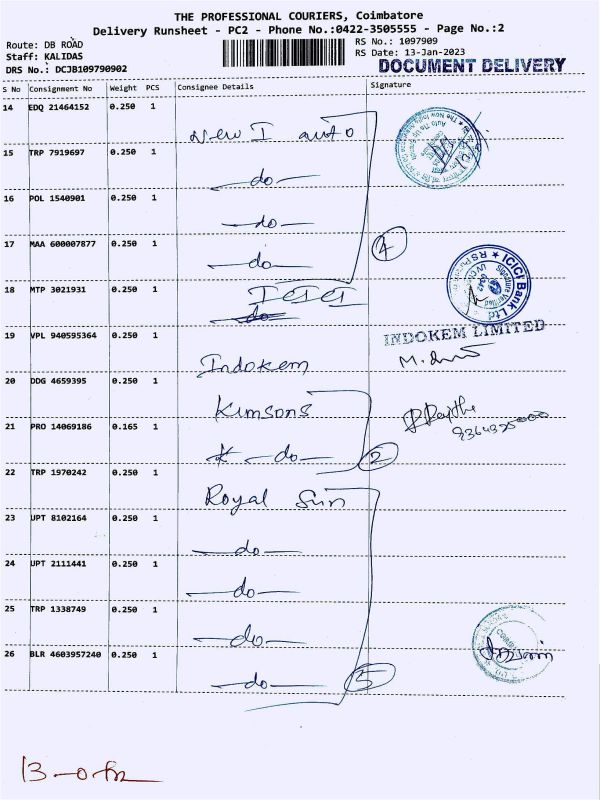 THE PROFESSIONAL COURIERS, Coimbatore
Delivery Runsheet - PC2 - Phone No.:0422-3505555 - Page No.:2
Route: DB ROAD
RS No.: 1097909
Staff: KALIDAS
RS Date: 13-Jan-2023
DRS No.: DCJB109790902
DOCUMENT DELIVERY
S No Consignment No Weight PCS Consignee Details Signature
14 EDQ 21464152 0.250 1
New I auto
15 TRP 7919697 0.250 1
—do—
16 POL 1540901 0.250 1
—do—
17 MAA 600007877 0.250 1
—do—
4
18 MTP 3021931 0.250 1
ICICI
do
ICICI Bank Ltd
Signature Verified
INDOKEM LIMITED
19 VPL 940595364 0.250 1
Indokem
20 DDG 4659395 0.250 1
Kimsons
21 PRO 14069186 0.165 1
—do—
2
22 TRP 1970242 0.250 1
Royal Sun
23 UPT 8102164 0.250 1
—do—
24 UPT 2111441 0.250 1
—do—
25 TRP 1338749 0.250 1
—do—
26 BLR 4603957240 0.250 1
—do—
5